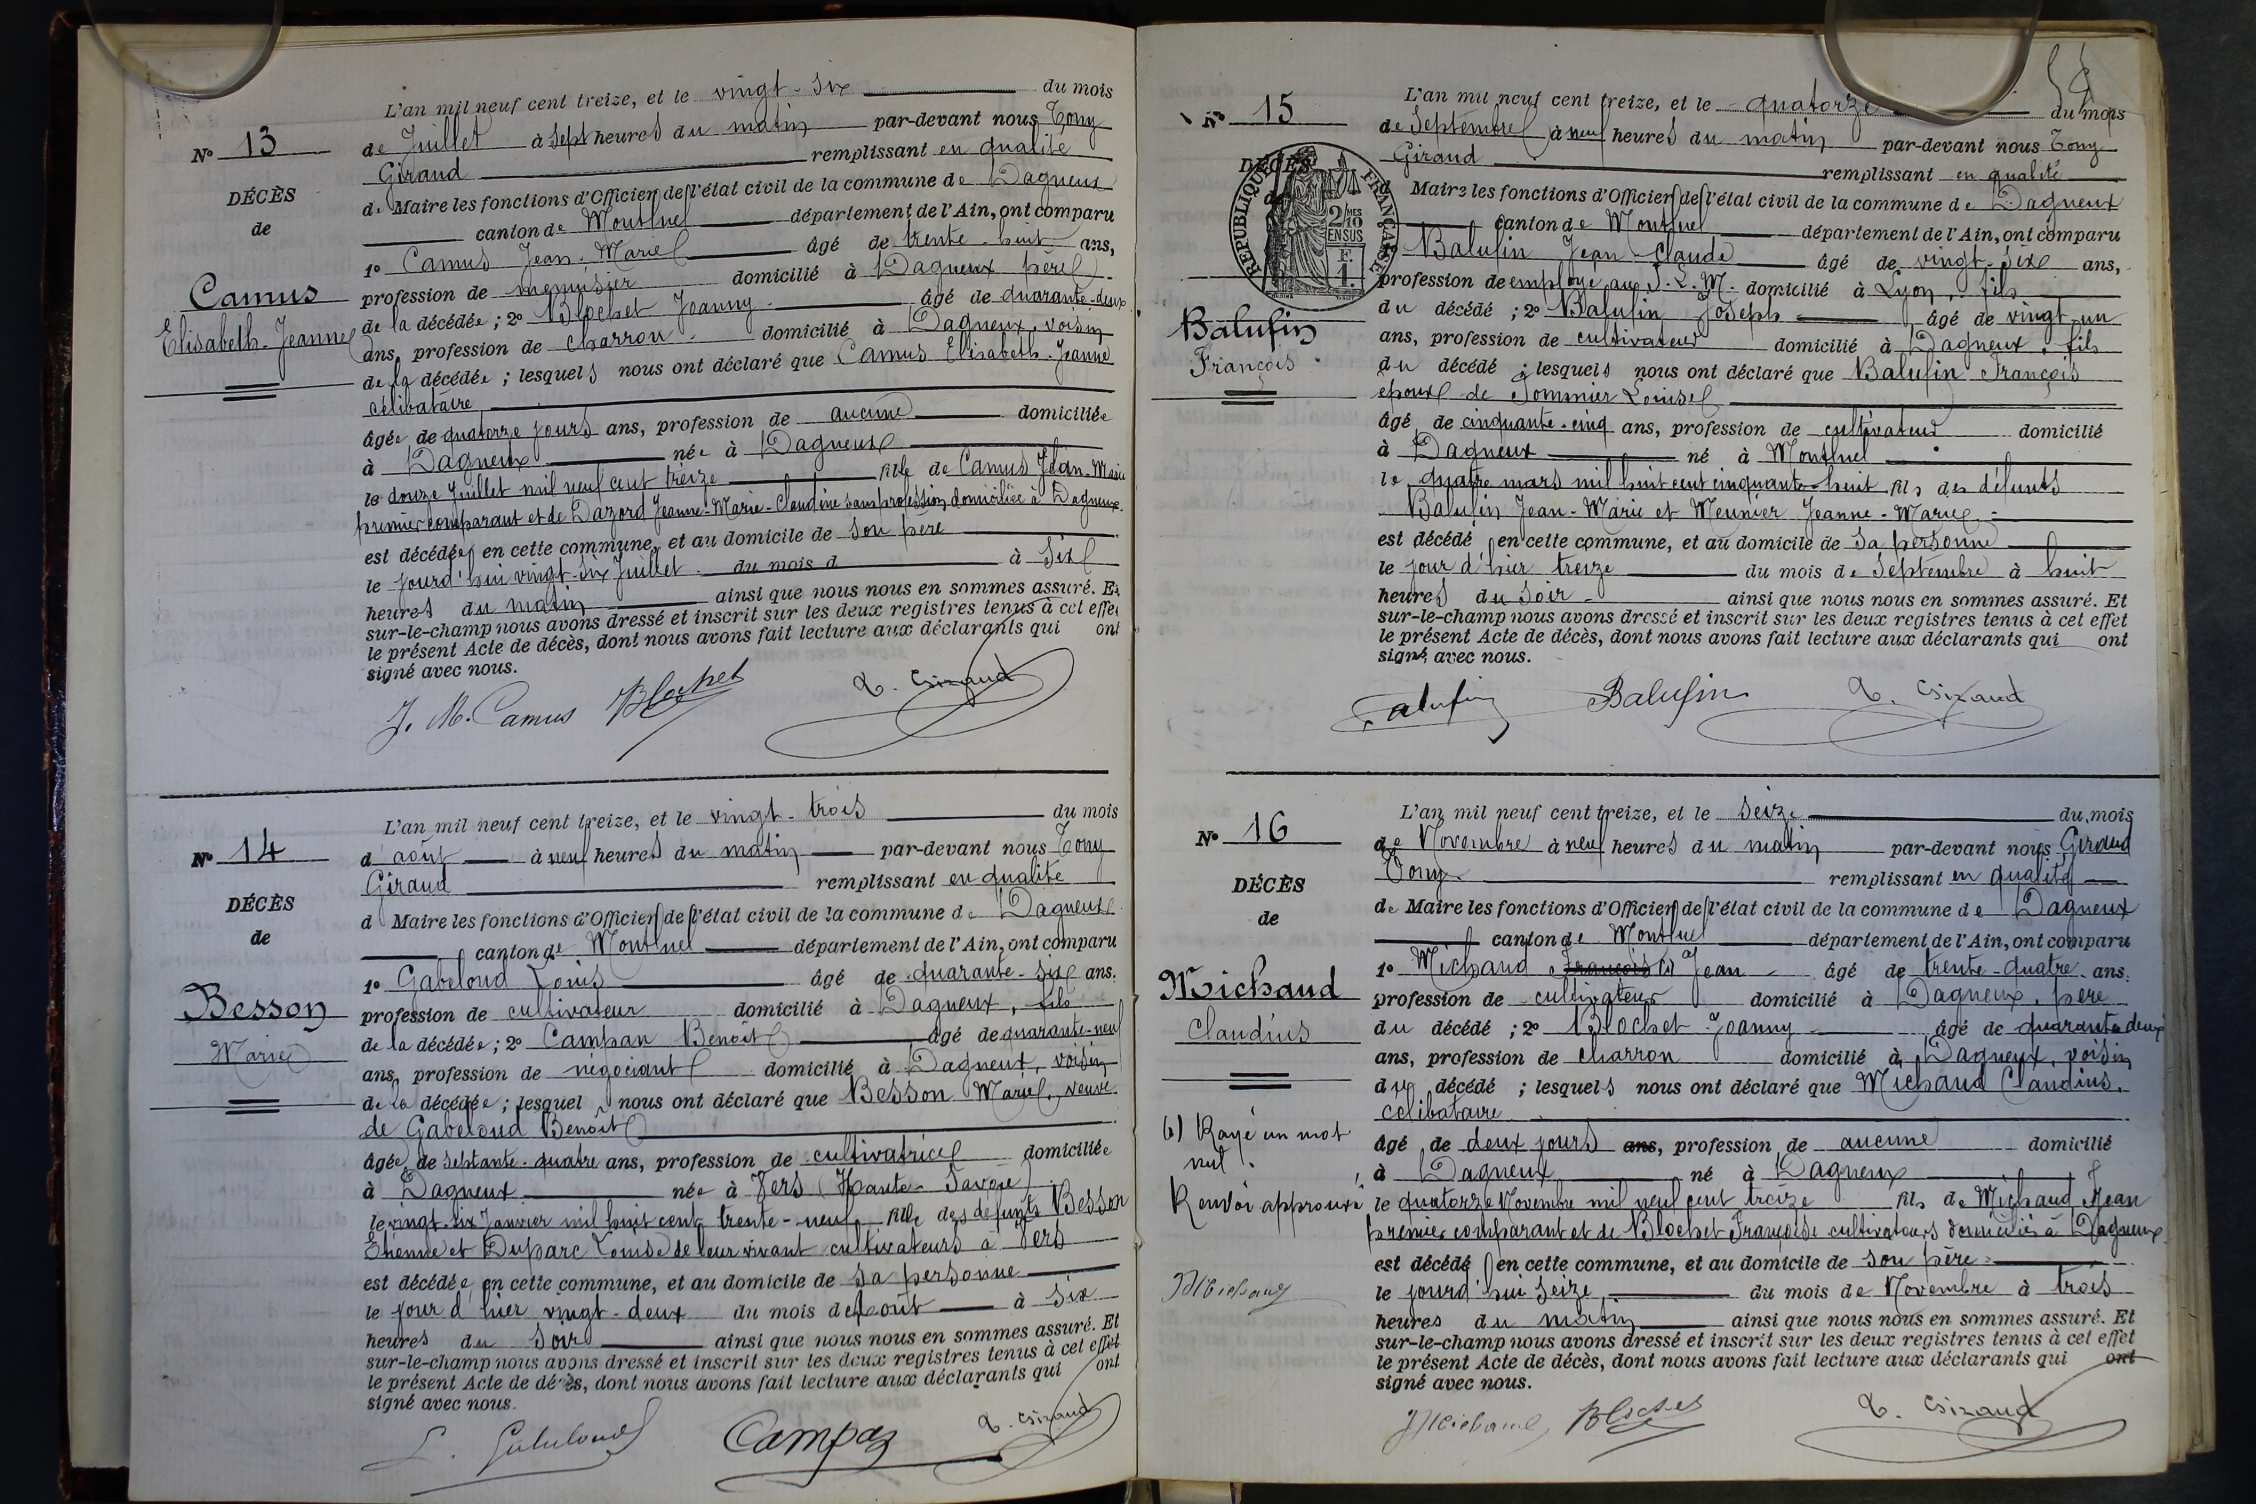 L'an mil neuf cent treize, et le vingt-six du mois
N° 13
de Juillet à sept heures du matin par-devant nous Tony
Giraud remplissant en qualité
DÉCÈS
de Maire les fonctions d'Officier de l'état civil de la commune de Dagneux
de
canton de Montluel département de l'Ain, ont comparu
1° Camus Jean-Marie âgé de trente-huit ans,
Camus
profession de menuisier domicilié à Dagneux père
Elisabeth-Jeanne
de la décédée ; 2° Blochet Joanny âgé de quarante-deux
ans, profession de charron domicilié à Dagneux, voisin
de la décédée ; lesquels nous ont déclaré que Camus Elisabeth-Jeanne
célibataire
âgée de quatorze jours ans, profession de aucune domiciliée
à Dagneux née à Dagneux
le douze Juillet mil neuf cent treize fille de Camus Jean-Marie
premier comparant et de Dazord Jeanne-Marie-Claudine sans profession domiciliée à Dagneux.
est décédée en cette commune, et au domicile de son père
le jourd'hui vingt-six Juillet du mois d à six
heures du matin ainsi que nous nous en sommes assuré. Et
sur-le-champ nous avons dressé et inscrit sur les deux registres tenus à cet effet
le présent Acte de décès, dont nous avons fait lecture aux déclarants qui ont
signé avec nous.
J. M. Camus Blochet T. Giraud
L'an mil neuf cent treize, et le vingt-trois du mois
N° 14
d'août à neuf heures du matin par-devant nous Tony
Giraud remplissant en qualité
DÉCÈS
d Maire les fonctions d'Officier de l'état civil de la commune de Dagneux
de
canton de Montluel département de l'Ain, ont comparu
1° Gabeloud Louis âgé de quarante-six ans.
Besson
profession de cultivateur domicilié à Dagneux, fils
Marie
de la décédée ; 2° Campan Benoît âgé de quarante-neuf
ans, profession de négociant domicilié à Dagneux, voisin
de la décédée ; lesquels nous ont déclaré que Besson Marie, veuve
de Gabeloud Benoît
âgée de septante-quatre ans, profession de cultivatrice domiciliée
à Dagneux née à Vers (Haute-Savoie)
le vingt-six Janvier mil huit cent trente-neuf fille des défunts Besson
Etienne et Duparc Louise de leur vivant cultivateurs à Vers
est décédée en cette commune, et au domicile de sa personne
le jour d'hier vingt-deux du mois d'août à six
heures du soir ainsi que nous nous en sommes assuré. Et
sur-le-champ nous avons dressé et inscrit sur les deux registres tenus à cet effet
le présent Acte de décès, dont nous avons fait lecture aux déclarants qui ont
signé avec nous.
L. Gabeloud Campan T. Giraud
L'an mil neuf cent treize, et le quatorze du mois
N° 15
de Septembre à neuf heures du matin par-devant nous Tony
Giraud remplissant en qualité
DÉCÈS
d Maire les fonctions d'Officier de l'état civil de la commune de Dagneux
de
RÉPUBLIQUE FRANÇAISE
2/10 MES
EN SUS
F.
1.
canton de Montluel département de l'Ain, ont comparu
Balufin Jean-Claude âgé de vingt-six ans,
profession de employé aux P.L.M. domicilié à Lyon, fils
Balufin
François
du décédé ; 2° Balufin Joseph âgé de vingt-un
ans, profession de cultivateur domicilié à Dagneux, fils
du décédé ; lesquels nous ont déclaré que Balufin François
époux de Pommier Louise
âgé de cinquante-cinq ans, profession de cultivateur domicilié
à Dagneux né à Montluel
le quatre mars mil huit cent cinquante-huit fils des défunts
Balufin Jean-Marie et Meunier Jeanne-Marie
est décédé en cette commune, et au domicile de sa personne
le jour d'hier treize du mois de Septembre à huit
heures du soir ainsi que nous nous en sommes assuré. Et
sur-le-champ nous avons dressé et inscrit sur les deux registres tenus à cet effet
le présent Acte de décès, dont nous avons fait lecture aux déclarants qui ont
signé avec nous.
Balufin Balufin T. Giraud
L'an mil neuf cent treize, et le seize du mois
N° 16
de Novembre à neuf heures du matin par-devant nous Giraud
Tony remplissant en qualité
DÉCÈS
de Maire les fonctions d'Officier de l'état civil de la commune de Dagneux
de
canton de Montluel département de l'Ain, ont comparu
1° Michaud François (1) Jean âgé de trente-quatre ans.
Michaud
profession de cultivateur domicilié à Dagneux, père
Claudius
du décédé ; 2° Blochet Joanny âgé de quarante-deux
ans, profession de charron domicilié à Dagneux, voisin
du décédé ; lesquels nous ont déclaré que Michaud Claudius,
célibataire
(1) Rayé un mot
nul.
Renvoi approuvé
JMichaud
âgé de deux jours ans, profession de aucune domicilié
à Dagneux né à Dagneux
le quatorze Novembre mil neuf cent treize fils de Michaud Jean
premier comparant et de Blochet Françoise cultivateurs domiciliés à Dagneux
est décédé en cette commune, et au domicile de son père
le jourd'hui seize du mois de Novembre à trois
heures du matin ainsi que nous nous en sommes assuré. Et
sur-le-champ nous avons dressé et inscrit sur les deux registres tenus à cet effet
le présent Acte de décès, dont nous avons fait lecture aux déclarants qui ont
signé avec nous.
JMichaud Blochet T. Giraud